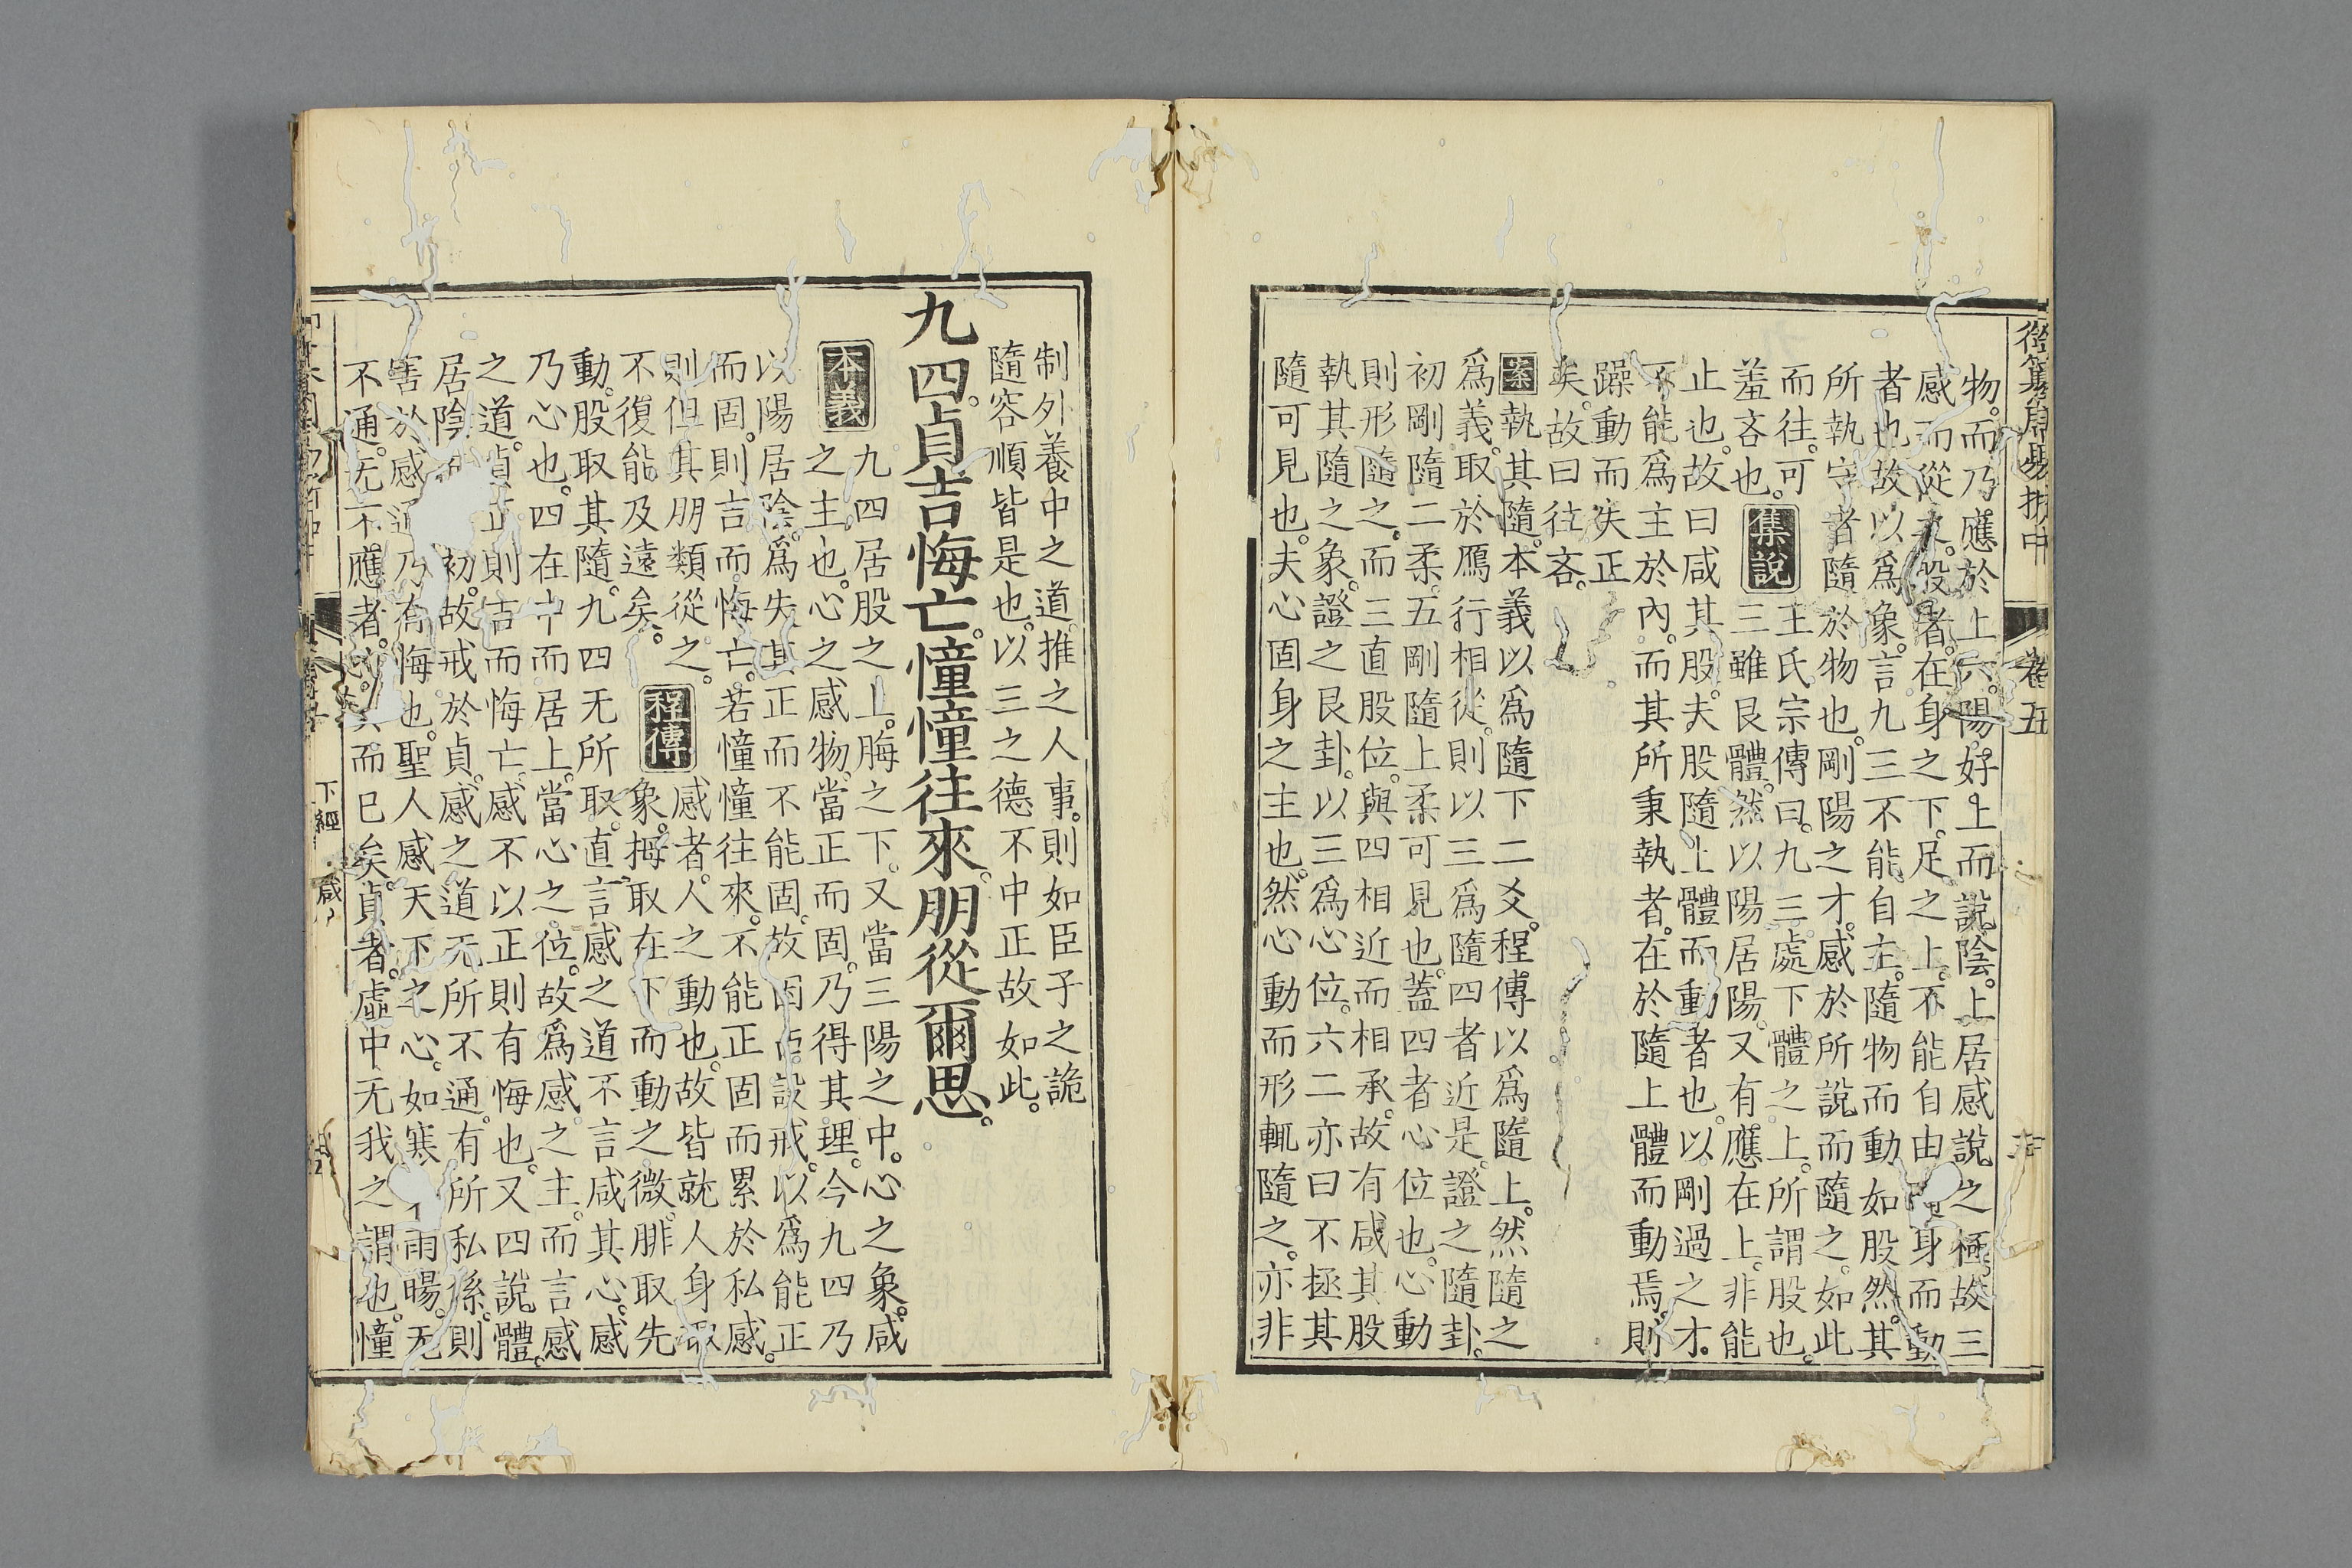 御纂周易折中
卷五
物。而乃應於上六。陽。好上而說陰。上居感說之極。故三
感而從之。股者。在身之下。足之上。不能自由。隨身而動
者也。故以爲象。言九三不能自主。隨物而動如股然。其
所執守者隨於物也。剛陽之才。感於所說而隨之。如此
而往。可
羞吝也。集說王氏宗傳曰。九三。處下體之上。所謂股也。
三雖艮體。然以陽居陽。又有應在上。非能
止也。故曰咸其股。夫股隨上體而動者也。以剛過之才。
不能爲主於內。而其所秉執者。在於隨上體而動焉。則
躁動而失正
矣。故曰往吝。
案執其隨。本義以爲隨下二爻。程傳以爲隨上。然隨之
爲義。取於鴈行相從。則以三爲隨四者近是。證之隨卦。
初剛隨二柔。五剛隨上柔可見也。蓋四者心位也。心動
則形隨之。而三直股位。與四相近而相承。故有咸其股
執其隨之象。證之艮卦。以三爲心位。六二亦曰不拯其
隨可見也。夫心固身之主也。然心動而形輒隨之。亦非
制外養中之道。推之人事。則如臣子之詭
隨容順皆是也。以三之德不中正故如此。
九四。貞吉悔亡。憧憧往來。朋從爾思。
本義九四居股之上。脢之下。又當三陽之中。心之象。咸
之主也。心之感物。當正而固。乃得其理。今九四乃
以陽居陰。爲失其正而不能固。故因占設戒。以爲能正
而固。則吉而悔亡。若憧憧往來。不能正固而累於私感。
則但其朋類從之。
不復能及遠矣。程傳感者。人之動也。故皆就人身取
象。拇取在下而動之微。腓取先
動。股取其隨。九四无所取。直言感之道不言咸其心。感
乃心也。四在中而居上。當心之位。故爲感之主。而言感
之道。貞正則吉而悔亡。感不以正則有悔也。又四說體。
居陰初。故戒於貞。感之道无所不通。有所私係。則
害於感通乃有悔也。聖人感天下之心。如寒雨暘。无
不通。无不應者。而已矣。貞者。虛中无我之謂也。憧
下經
咸